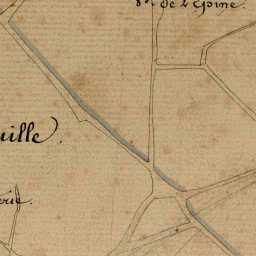 de l'Epine.
uille
erie.